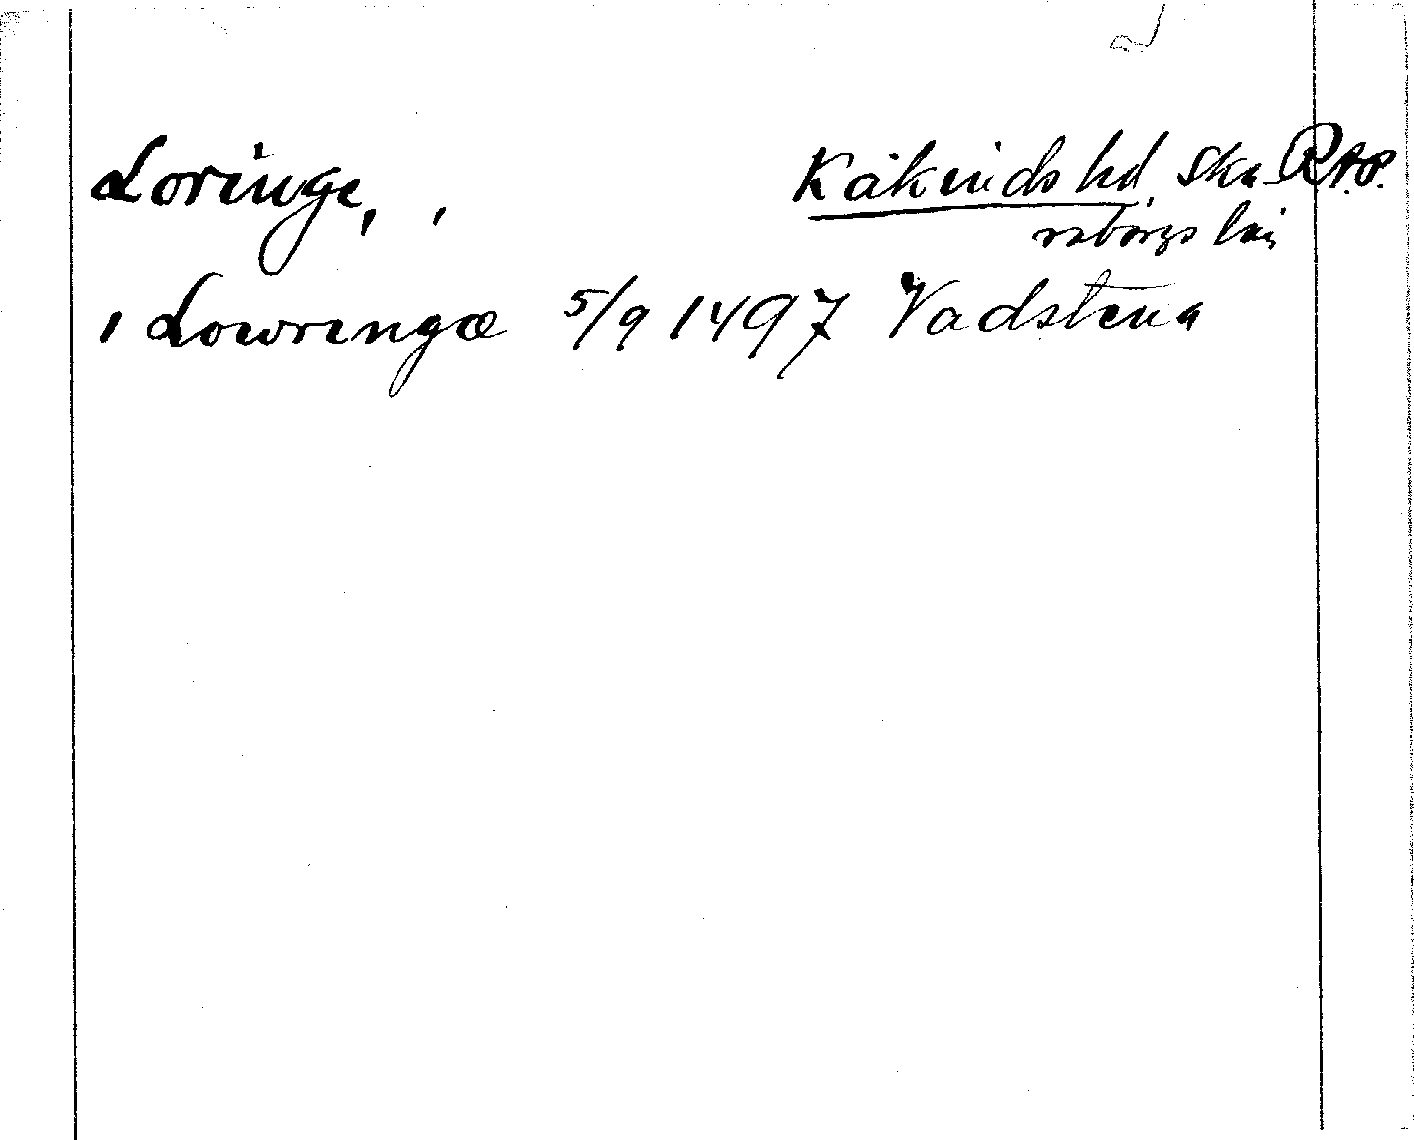 Loringe, , Kåkinds hd. Ska- RAP.
raborgs län
i Lowringæ 5/9 1497 Vadstena